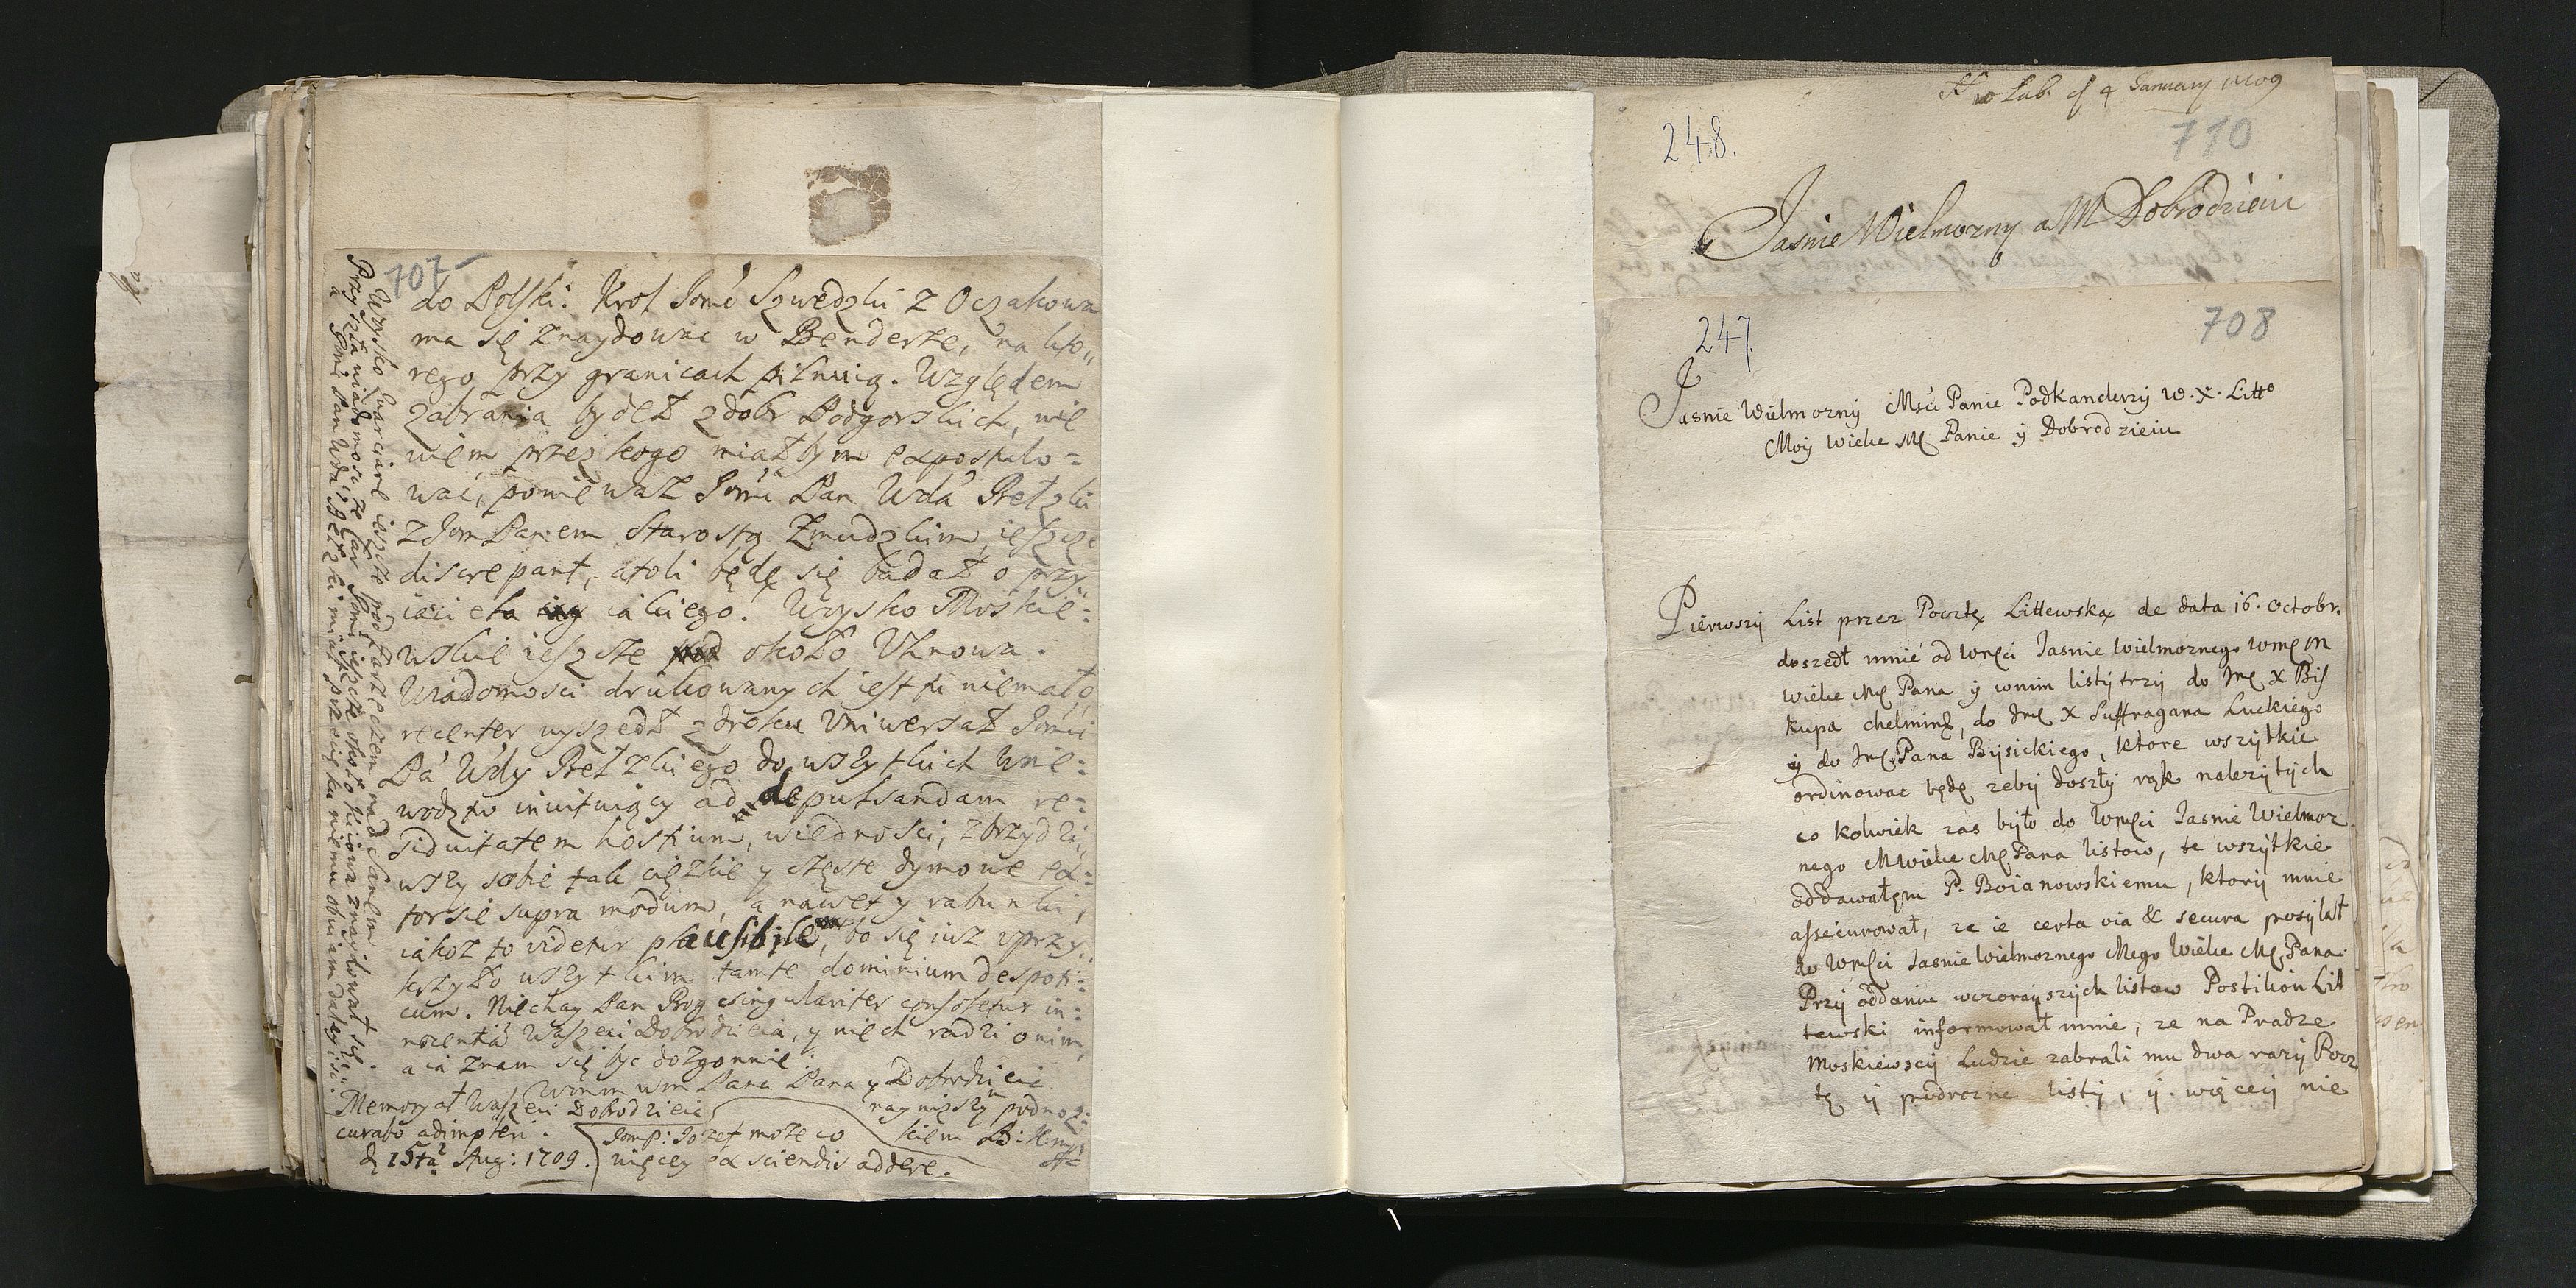 707
do Polski. Krol Jomć Szwedzki z Oczakowa
ma się znaydowac w Benderze, na kto„
rego przy granicach pilnuią. Względem
zabrania bydeł z dobr Podgorskich, nie
wiem przez kogo miałbym expostulo=
wać, poniewasz Jomć Pan Wda Bełzki
z Jom Panem Starostą Zmudzkim, ieszcze
discrepant, atoli będę się badał o przy„
iaciela iakiego. Woysko Moskie=
wskie ieszcze około Uhnowa.
Wiadomosci drukowanych iest tu niemało,
recenter wyszedł z druku Uniwersał Jomći
Pa Wdy Bełzkiego do wszytkich Woie=
wodztw invituiący ad depulsandam re=
siduitatem hostium, wiedności, zbrzydzi„
wszy sobie tak ciężkie y częste dymowe ex=
torsie supra modum, a nawet y rabunki,
iakoż to videtur plausibile, bo się iusz uprzy„
krzyło wszytkim tamte dominium despoti=
cum. Niechay Pan Bog singulariter consoletur in=
nocentiā Waszeci Dobrodzieia, y niech radzi o nim,
a ia znam się byc dozgonnie
Wmm wm Pana Pana y Dobrodzieia
Memoryał Waszeci Dobrodzieia
curabo adimpleri.
naynizszym podnoz=
kiem
Jomp: Jozef może co
więcey ex sciendis addere.
d 15ta Aug: 1709.
Woysko ieszcze pod Jarzeczem nad Sanem
Przyszła wiadomosc że Car Jomć ieszcze około Kiiowa znaydował się.
a Jomć Pan Wda Bełzki miał przeciwko niemu obviam daley iść.
4 January 1709
248.
710
Jasnie Wielmozny a M Dobrodzieiu
247.
708
Jasnie Wielmozny Mści Panie Podkanclerzy W. X. Litto
Moy wielce Mę Panie y Dobrodzieiu
Pierwszy List przez Pocztę Littewską de data 16. Octobr.
doszedł mnie od Wmści Jasnie wielmoznego wmę M
wielce Mę Pana y wnim listy trzy do Jmę X Bis
kupa chelminę, do Jmę X Suffragana Luckiego
y do Jmę Pana Bysickiego, ktore wszytkie
ordinowac będę zeby doszły rąk nalezytych
co kolwiek zas było do Wmści Jasnie Wielmoz
nego M wielce Mę Pana listow, te wszytkie
oddawałem P. Boianowskiemu, ktory mnie
assecurował, ze ie certa via & secura posyłał
do Wmści Jasnie wielmoznego Mego Wielce Mę Pana.
Przy oddaniu wczorayszych listow Postilion Lit
tewski informował mnie, ze na Pradze
Moskiewscy Ludzie zabrali mu dwa razy Pocz
tę y podrozne listy, y więcey nie